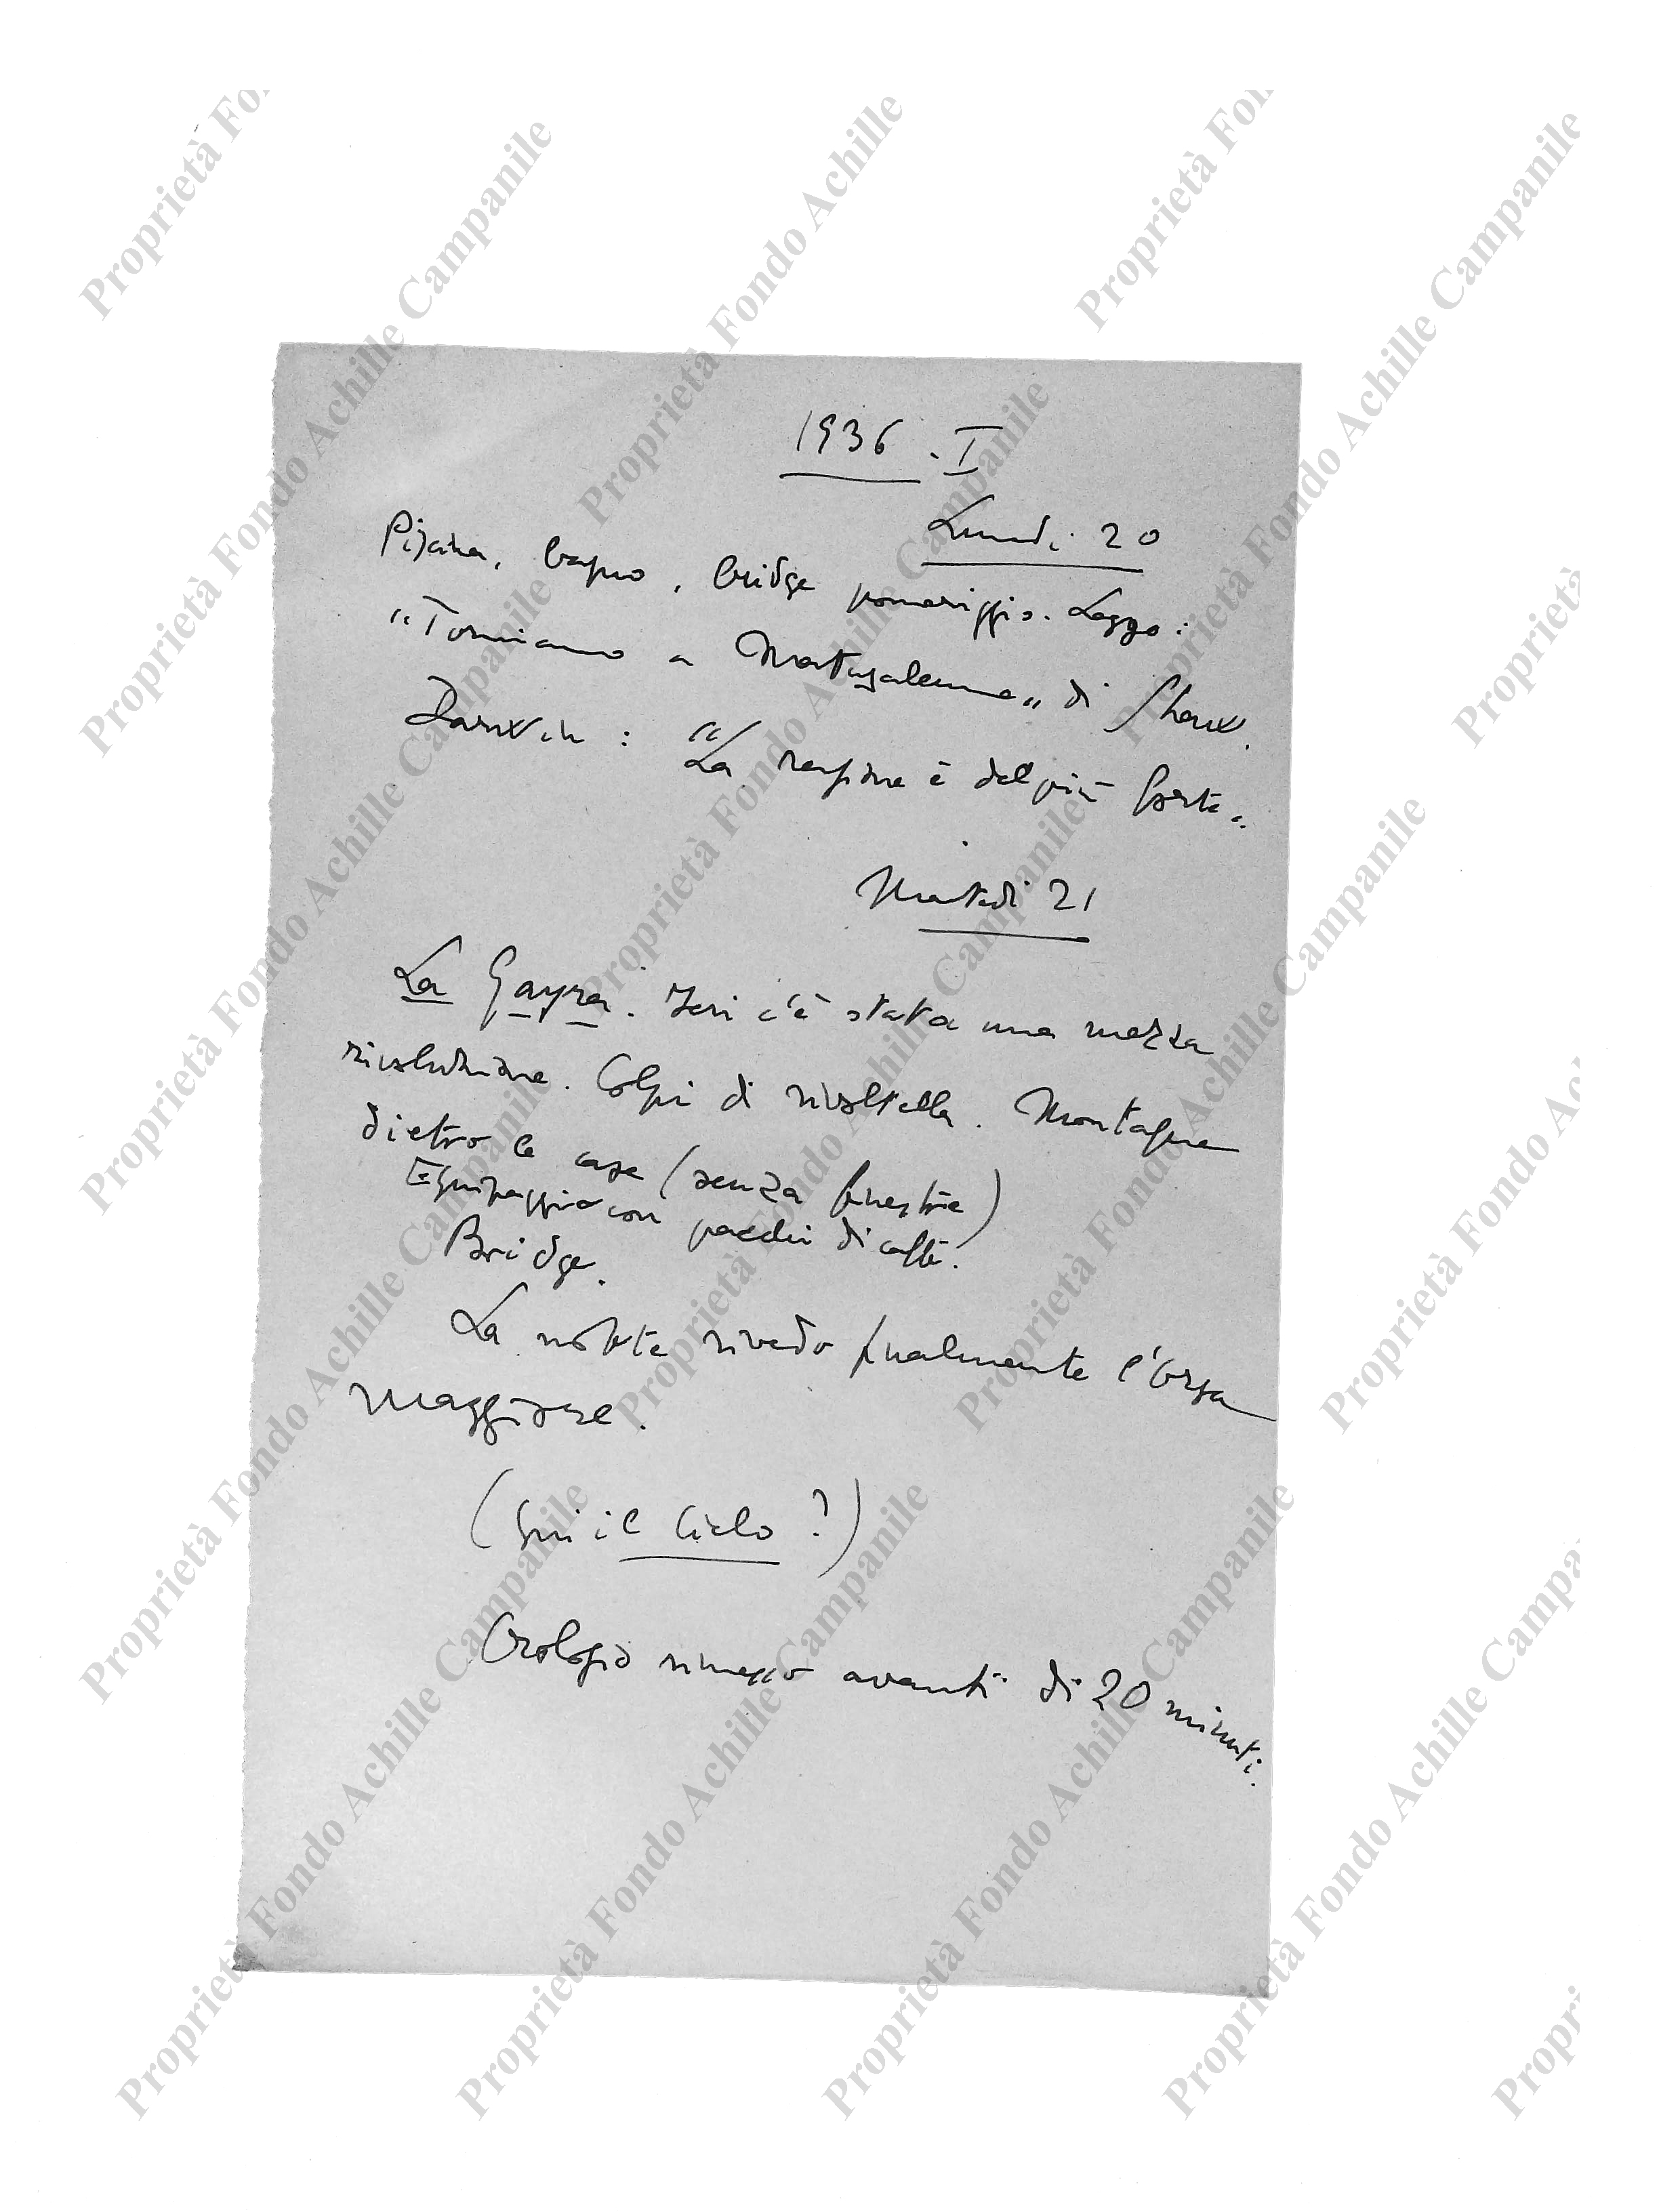 1936 . I
Lunedì 20
Piscina, bagno, bridge pomeriggio. Leggo:
"Torniamo a Matusalemme" di Shaw.
Darwin : "La ragione è del più forte".
Martedì 21
La Gayra. Ieri c'è stata una mezza
rivoluzione. Colpi di rivoltella. Montagne
dietro le case (senza finestre)
Equipaggio con pacchi di caffè.
Bridge.
La notte rivedo finalmente l'Orsa
Maggiore.
(Qui il cielo?)
Orologio rimesso avanti di 20 minuti.
Proprietà Fondo Achille Campanile